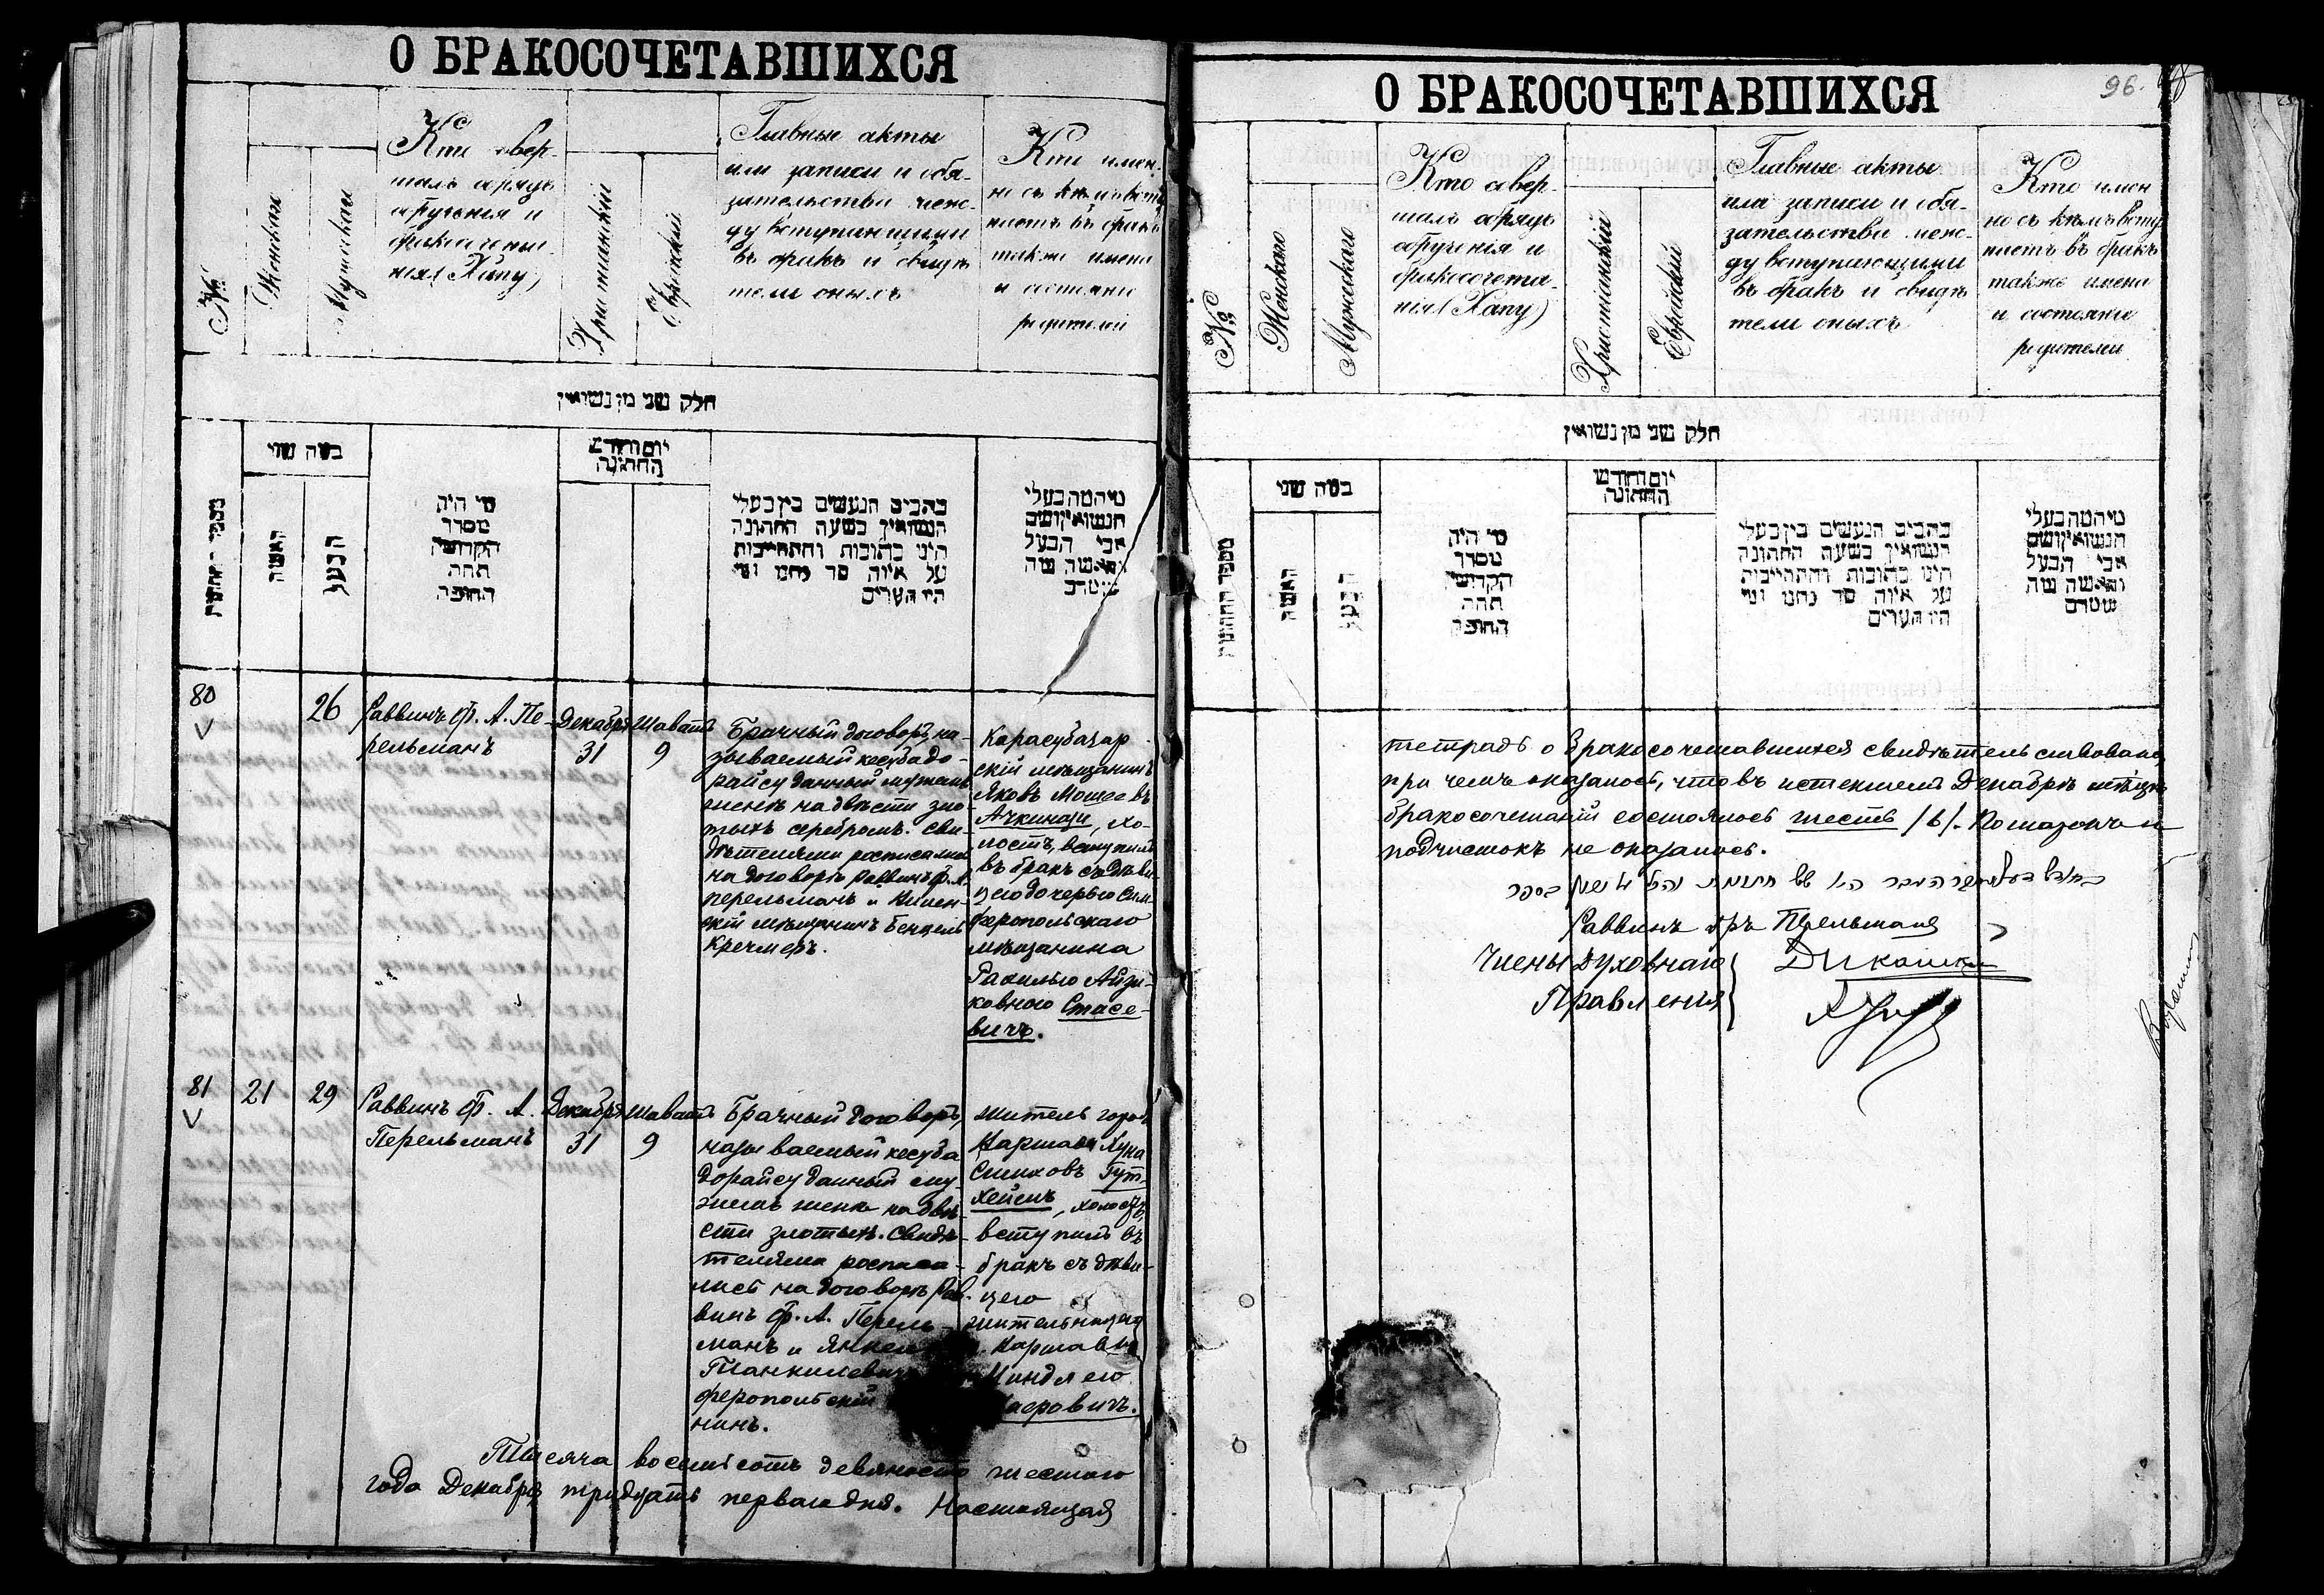 О БРАКОСОЧЕТАВШИХСЯ
№
Женская
Мужская
Кто совер-
шалъ обрядъ
обрученія и
бракосочета-
нія (Хупу)
Христіанскій
Еврейскій
Главные акты
или записи и обя-
зательства меж-
ду вступающими
въ бракъ и свидѣ
тели оныхъ
Кто имен-
но съ кѣмъ всту
паетъ въ бракъ
также имена
и состояніе
родителей
חלק שני מן נשואין
כמה שני
האשה
הבעל
מי היה
מסדר
הקדושין
תחת
החופה
יום וחודש
החתונה
כתבים הנעשים בין בעלי
הנשואין בשעה החתונה
היינו כתובות והתחייבות
על איזה סך נתנו ומי
היו העדים
מי המה בעלי
הנשואין ושם
אבי הבעל
והאשה
80
26
Раввинъ Ф. А. Пе-
рельманъ
Декабря
31
Шаватъ
9
Брачный договоръ, на-
зываемый кесуба до-
райсу данный мужемъ
женѣ на двѣсти зло-
тыхъ серебромъ. Сви-
дѣтелями росписались
на договорѣ Раввинъ Ф. А.
Перельманъ и
скій мѣщанинъ Бенціель
Кречмеръ.
Карасубазар-
скій мѣщанинъ
Яковъ Мошеевъ
Ачкинази, хо-
лостъ, вступилъ
въ бракъ съ дѣви-
цею дочерью Сим-
феропольскаго
мѣщанина
Рахилью Айзи-
ковною Стасе-
вичъ.
81
21
29
Раввинъ Ф. А.
Перельманъ
Декабря
31
Шаватъ
9
Брачный договоръ,
называемый кесуба
дорайсу данный му-
жемъ женѣ на двѣ-
сти злотыхъ. Свидѣ-
телями росписа-
лись на договорѣ Рав-
винъ Ф. А. Перель-
манъ и
Танкилевичъ
феропольскій
нинъ.
житель города
Варшавы
Симховъ Гут-
хеймъ, холостъ,
вступилъ въ
бракъ съ дѣви-
цею
жительницею
Варшавы
Тысяча восемьсотъ девяносто шестого
года Декабря тридцать перваго дня. Настоящая
О БРАКОСОЧЕТАВШИХСЯ
96.
№
Женскаго
Мужскаго
Кто совер-
шалъ обрядъ
обрученія и
бракосочета-
нія (Хупу)
Христіанскій
Еврейскій
Главные акты
или записи и обя-
зательства меж-
ду вступающими
въ бракъ и свидѣ
тели оныхъ
Кто имен
но съ кѣмъ всту
паетъ въ бракъ
также имена
и состояніе
родителей
חלק שני מן נשואין
מספר החתונות
כמה שני
האשה
הבעל
מי היה
מסדר
הקדושין
תחת
החופה
יום וחודש
החתונה
כתבים הנעשים בין בעלי
הנשואין בשעה החתונה
היינו כתובות והתחייבות
על איזה סך נתנו ומי
היו העדים
מי המה בעלי
הנשואין ושם
אבי הבעל
והאשה
тетрадь о Бракосочетавшихся свидѣтельствована,
при чемъ оказалось, что въ истекшемъ Декабрѣ мѣсяцѣ
бракосочетаній состоялось шесть /6/. Помарокъ и
подчистокъ не оказалось.
Раввинъ Перельманъ
Члены Духовнаго
Правленія